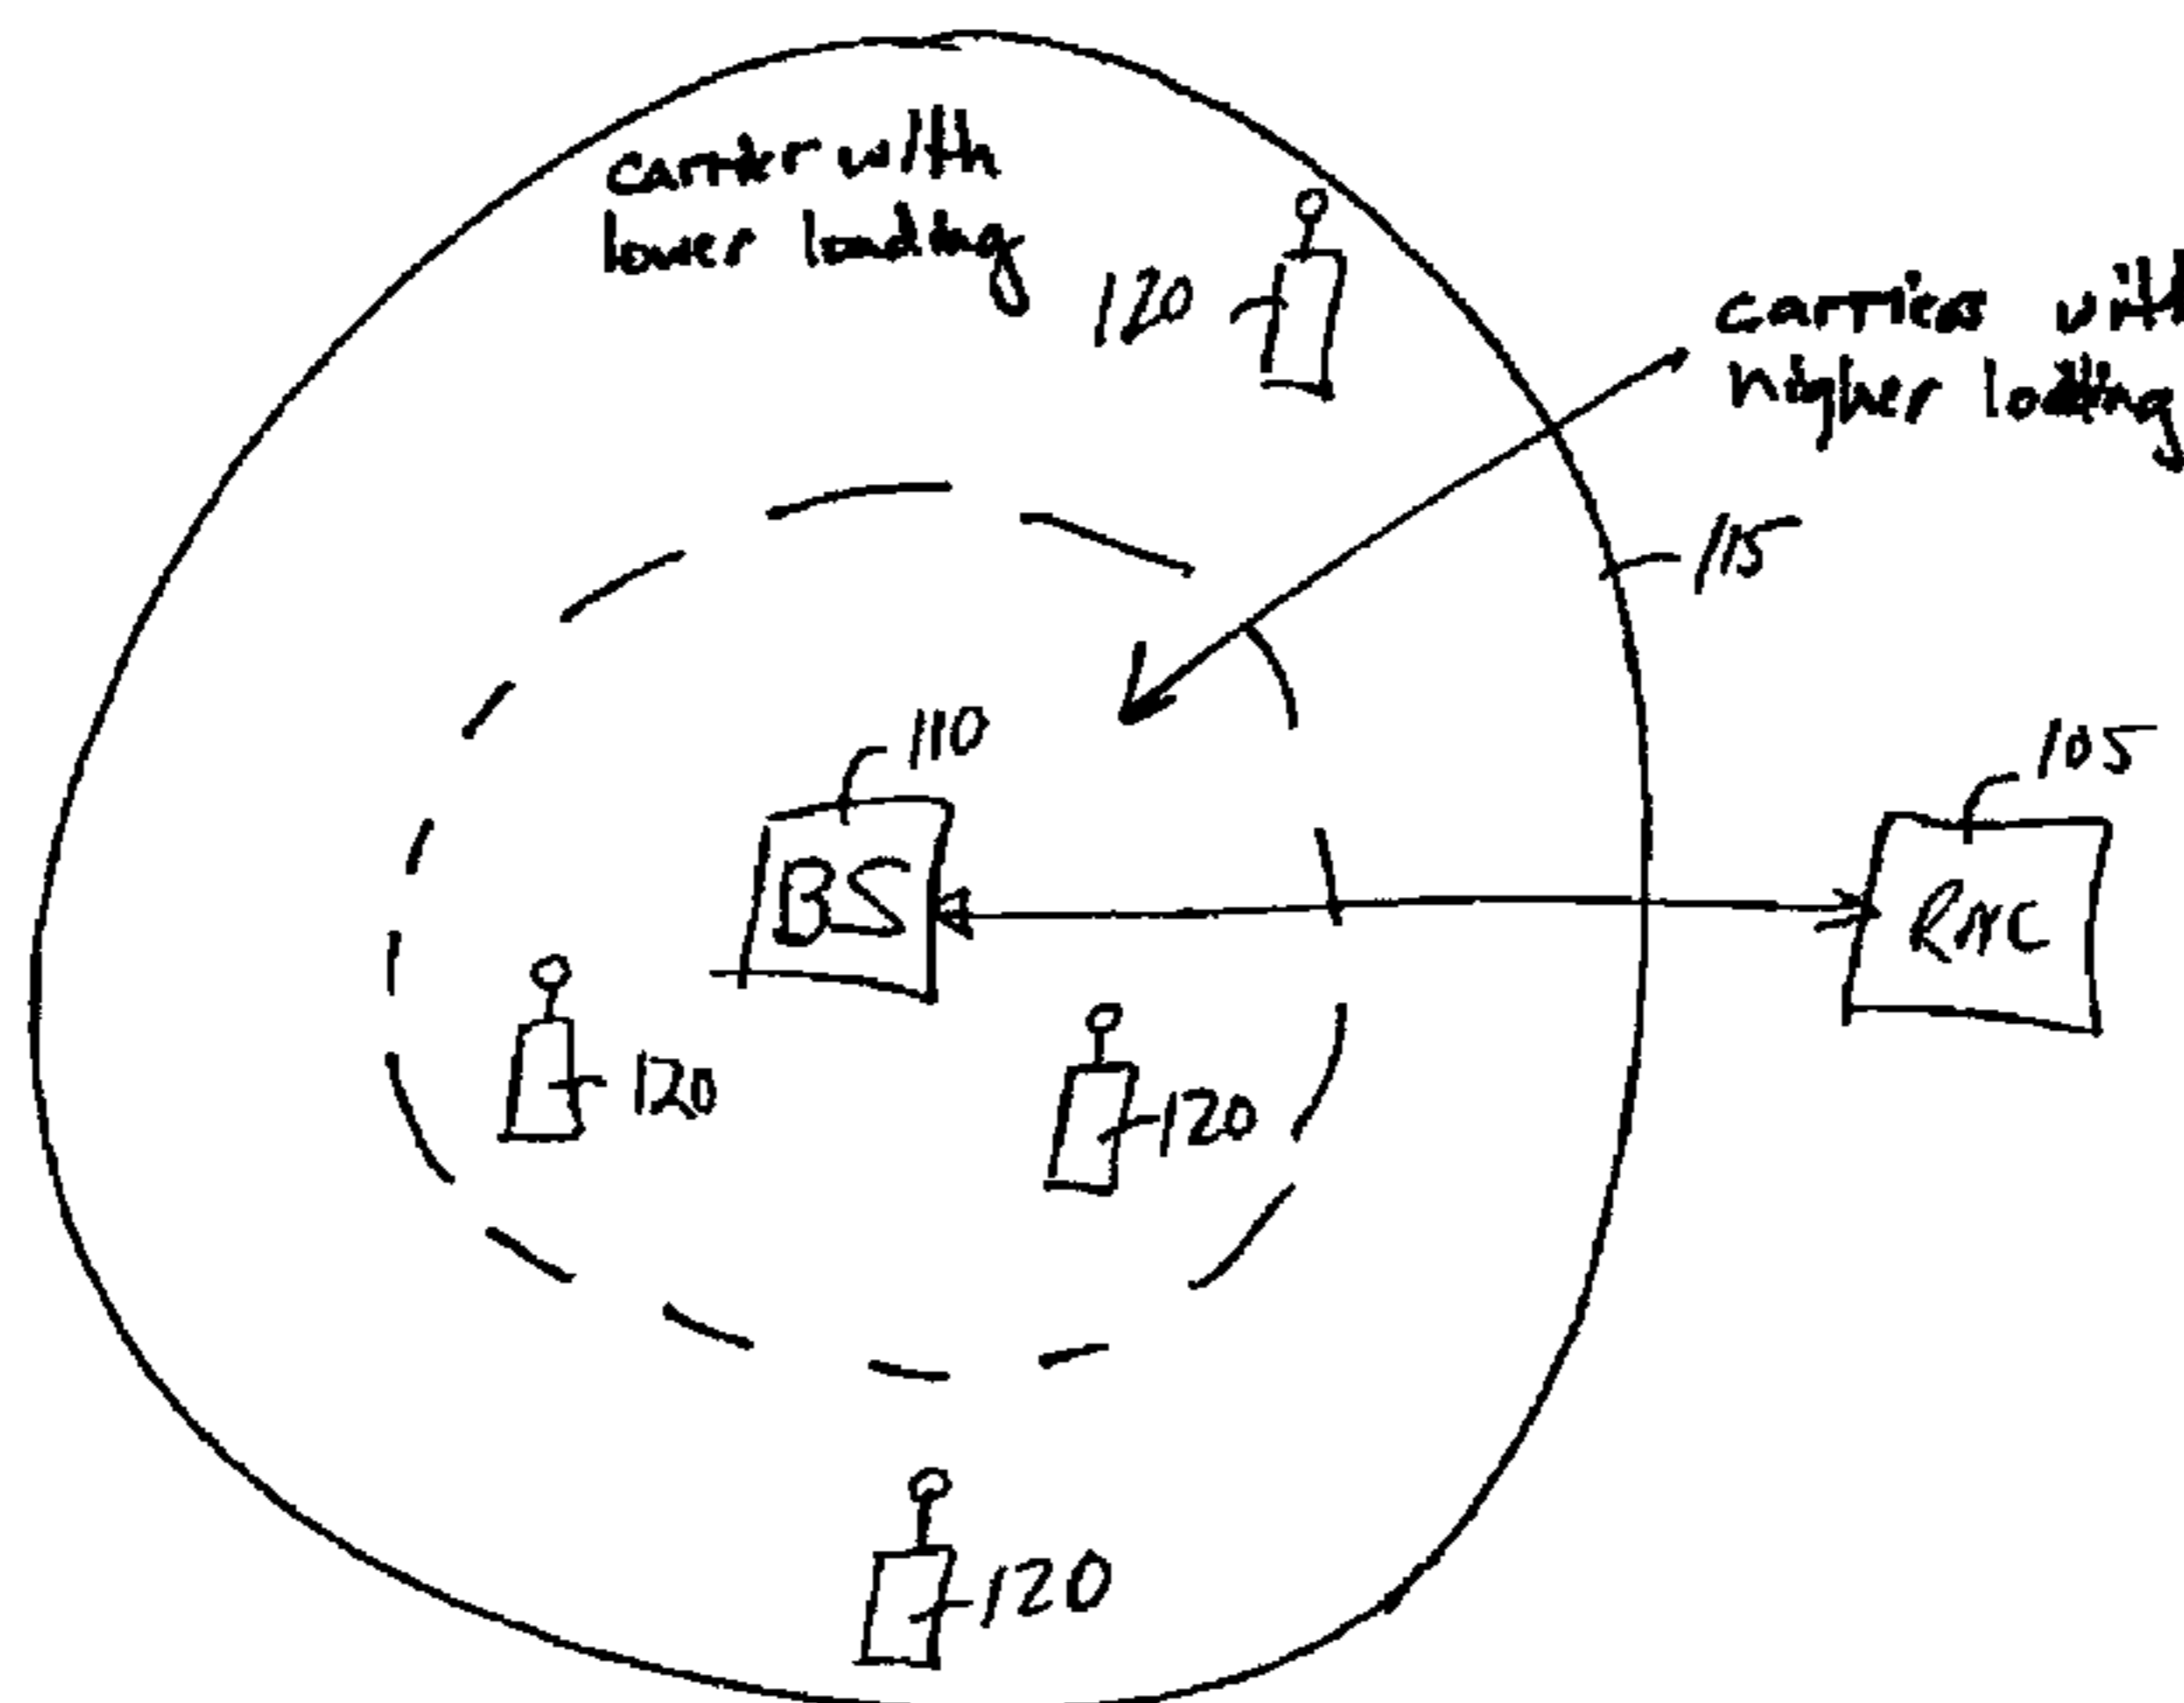 carrier with
lower loading
120
carries with
higher loading
115
110
105
BS
RNC
120
120
120